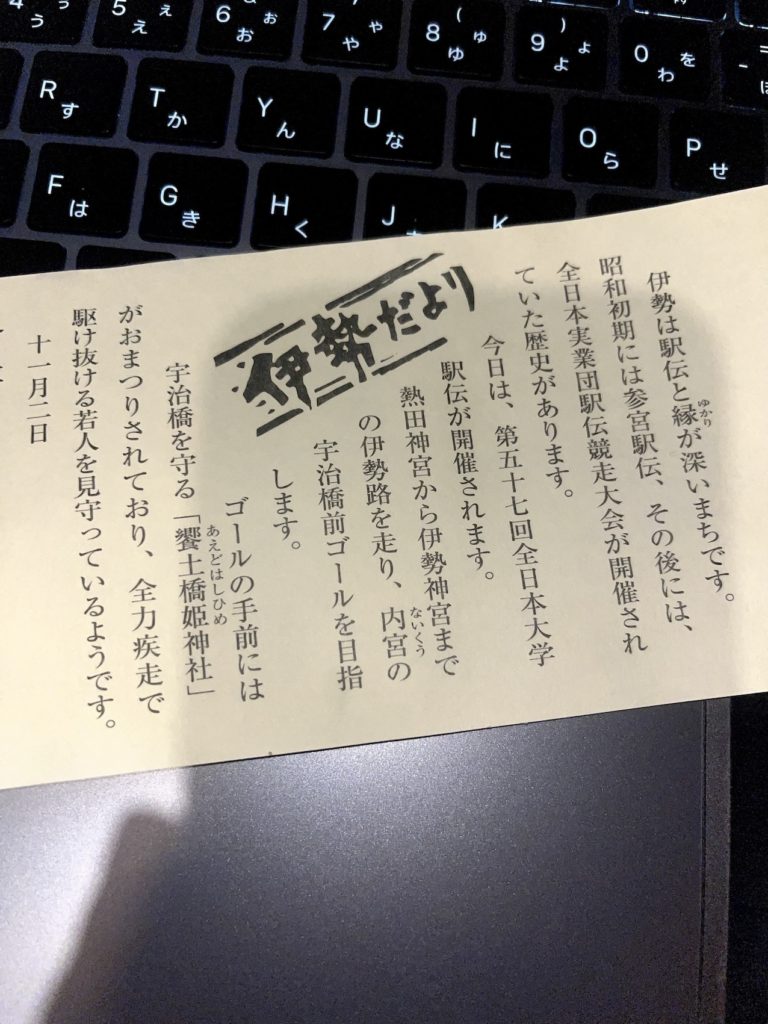 4 う ぅ
5 え ぇ
6 お ぉ
7 や ゃ
8 ( ゆ ゅ
9 ) よ ょ
0 わ を
-
R す
T か
Y ん
U な
I に
O ら
P せ
F は
G き
H く
J
K
伊勢だより
伊勢は駅伝と縁が深いまちです。
ゆかり
昭和初期には参宮駅伝、その後には、
全日本実業団駅伝競走大会が開催され
ていた歴史があります。
今日は、第五十七回全日本大学
駅伝が開催されます。
熱田神宮から伊勢神宮まで
の伊勢路を走り、内宮の
ないくう
宇治橋前ゴールを目指
します。
ゴールの手前には
宇治橋を守る「饗土橋姫神社」
あえどはしひめ
がおまつりされており、全力疾走で
駆け抜ける若人を見守っているようです。
十一月二日